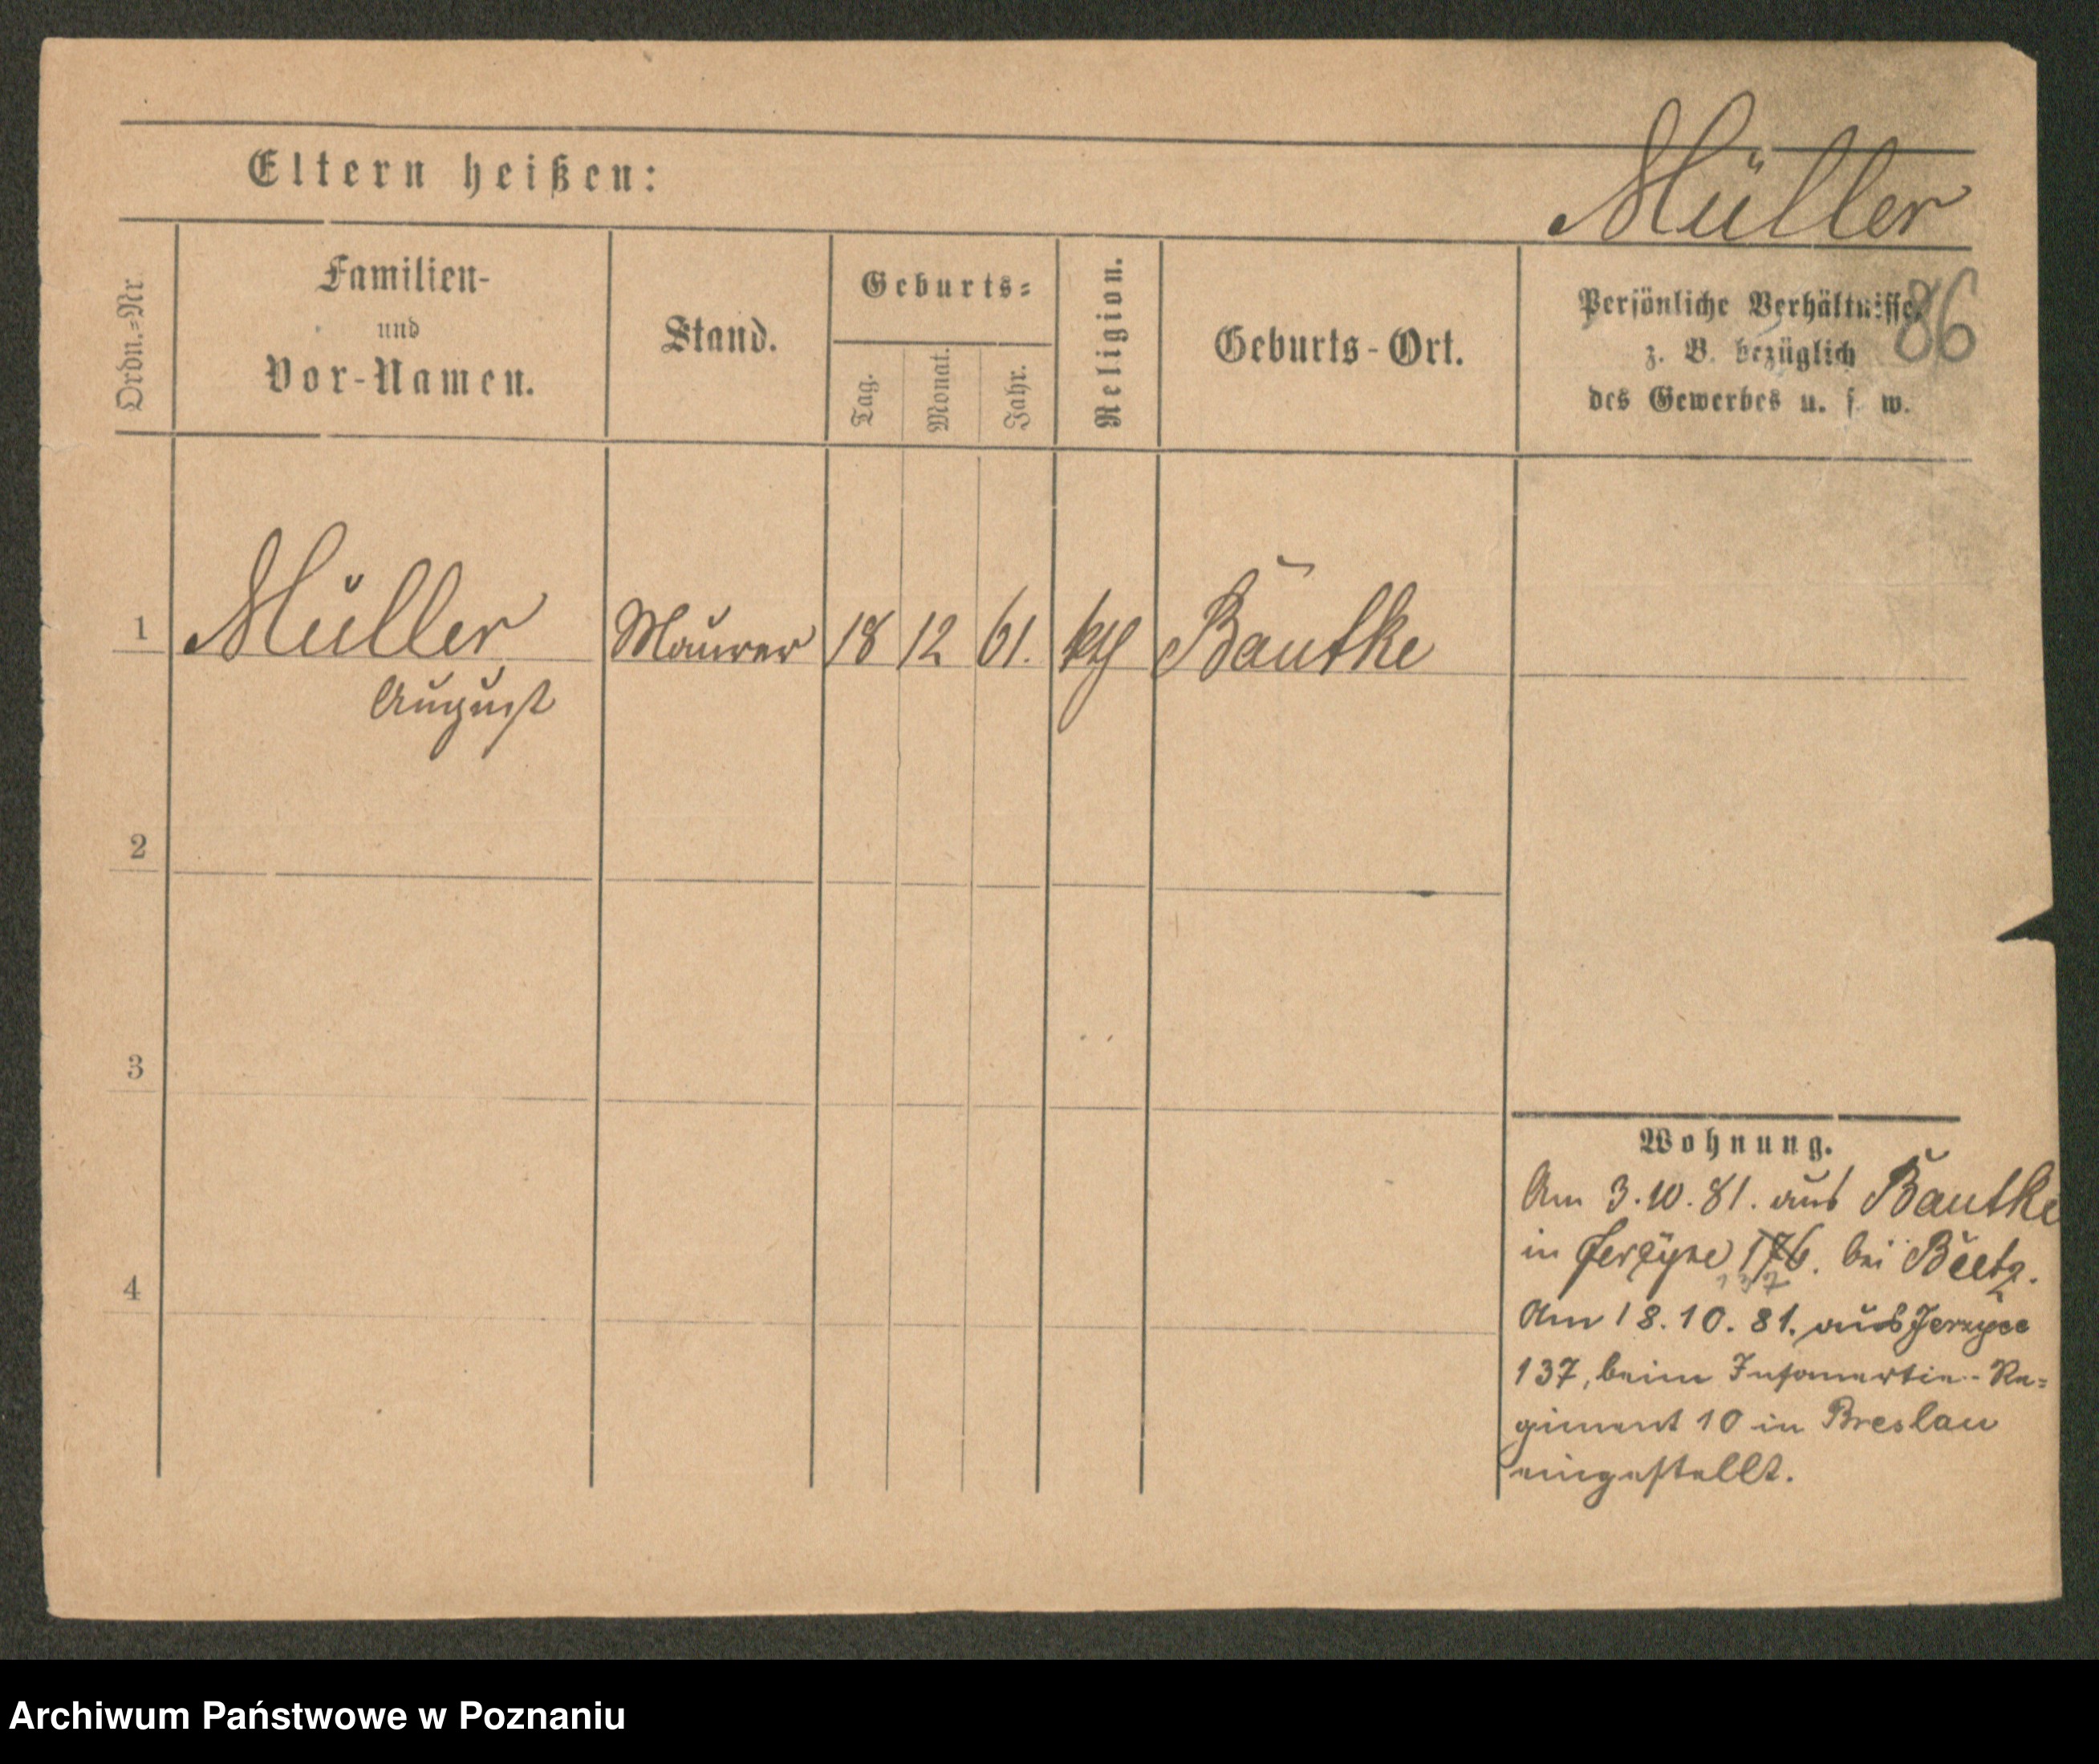 Müller
Eltern heißen:
86
Ordn.=Nr
Familien-
und
Vor-Namen.
Stand.
Geburts=
Tag.
Monat.
Jahr.
Religion.
Geburts-Ort.
Persönliche Verhältnisse,
z. B. bezüglich
des Gewerbes u. s. w.
1 Müller Maurer 18 12 61. kth Bautke
August
2
3
4
Wohnung.
Am 3.10.81. aus Bautke
in Jerzyce 176. bei
137
Am 18.10.81. aus Jerzyce
137, beim Infanterie-Re=
giment 10 in Breslau
eingestellt.
Archiwum Państwowe w Poznaniu